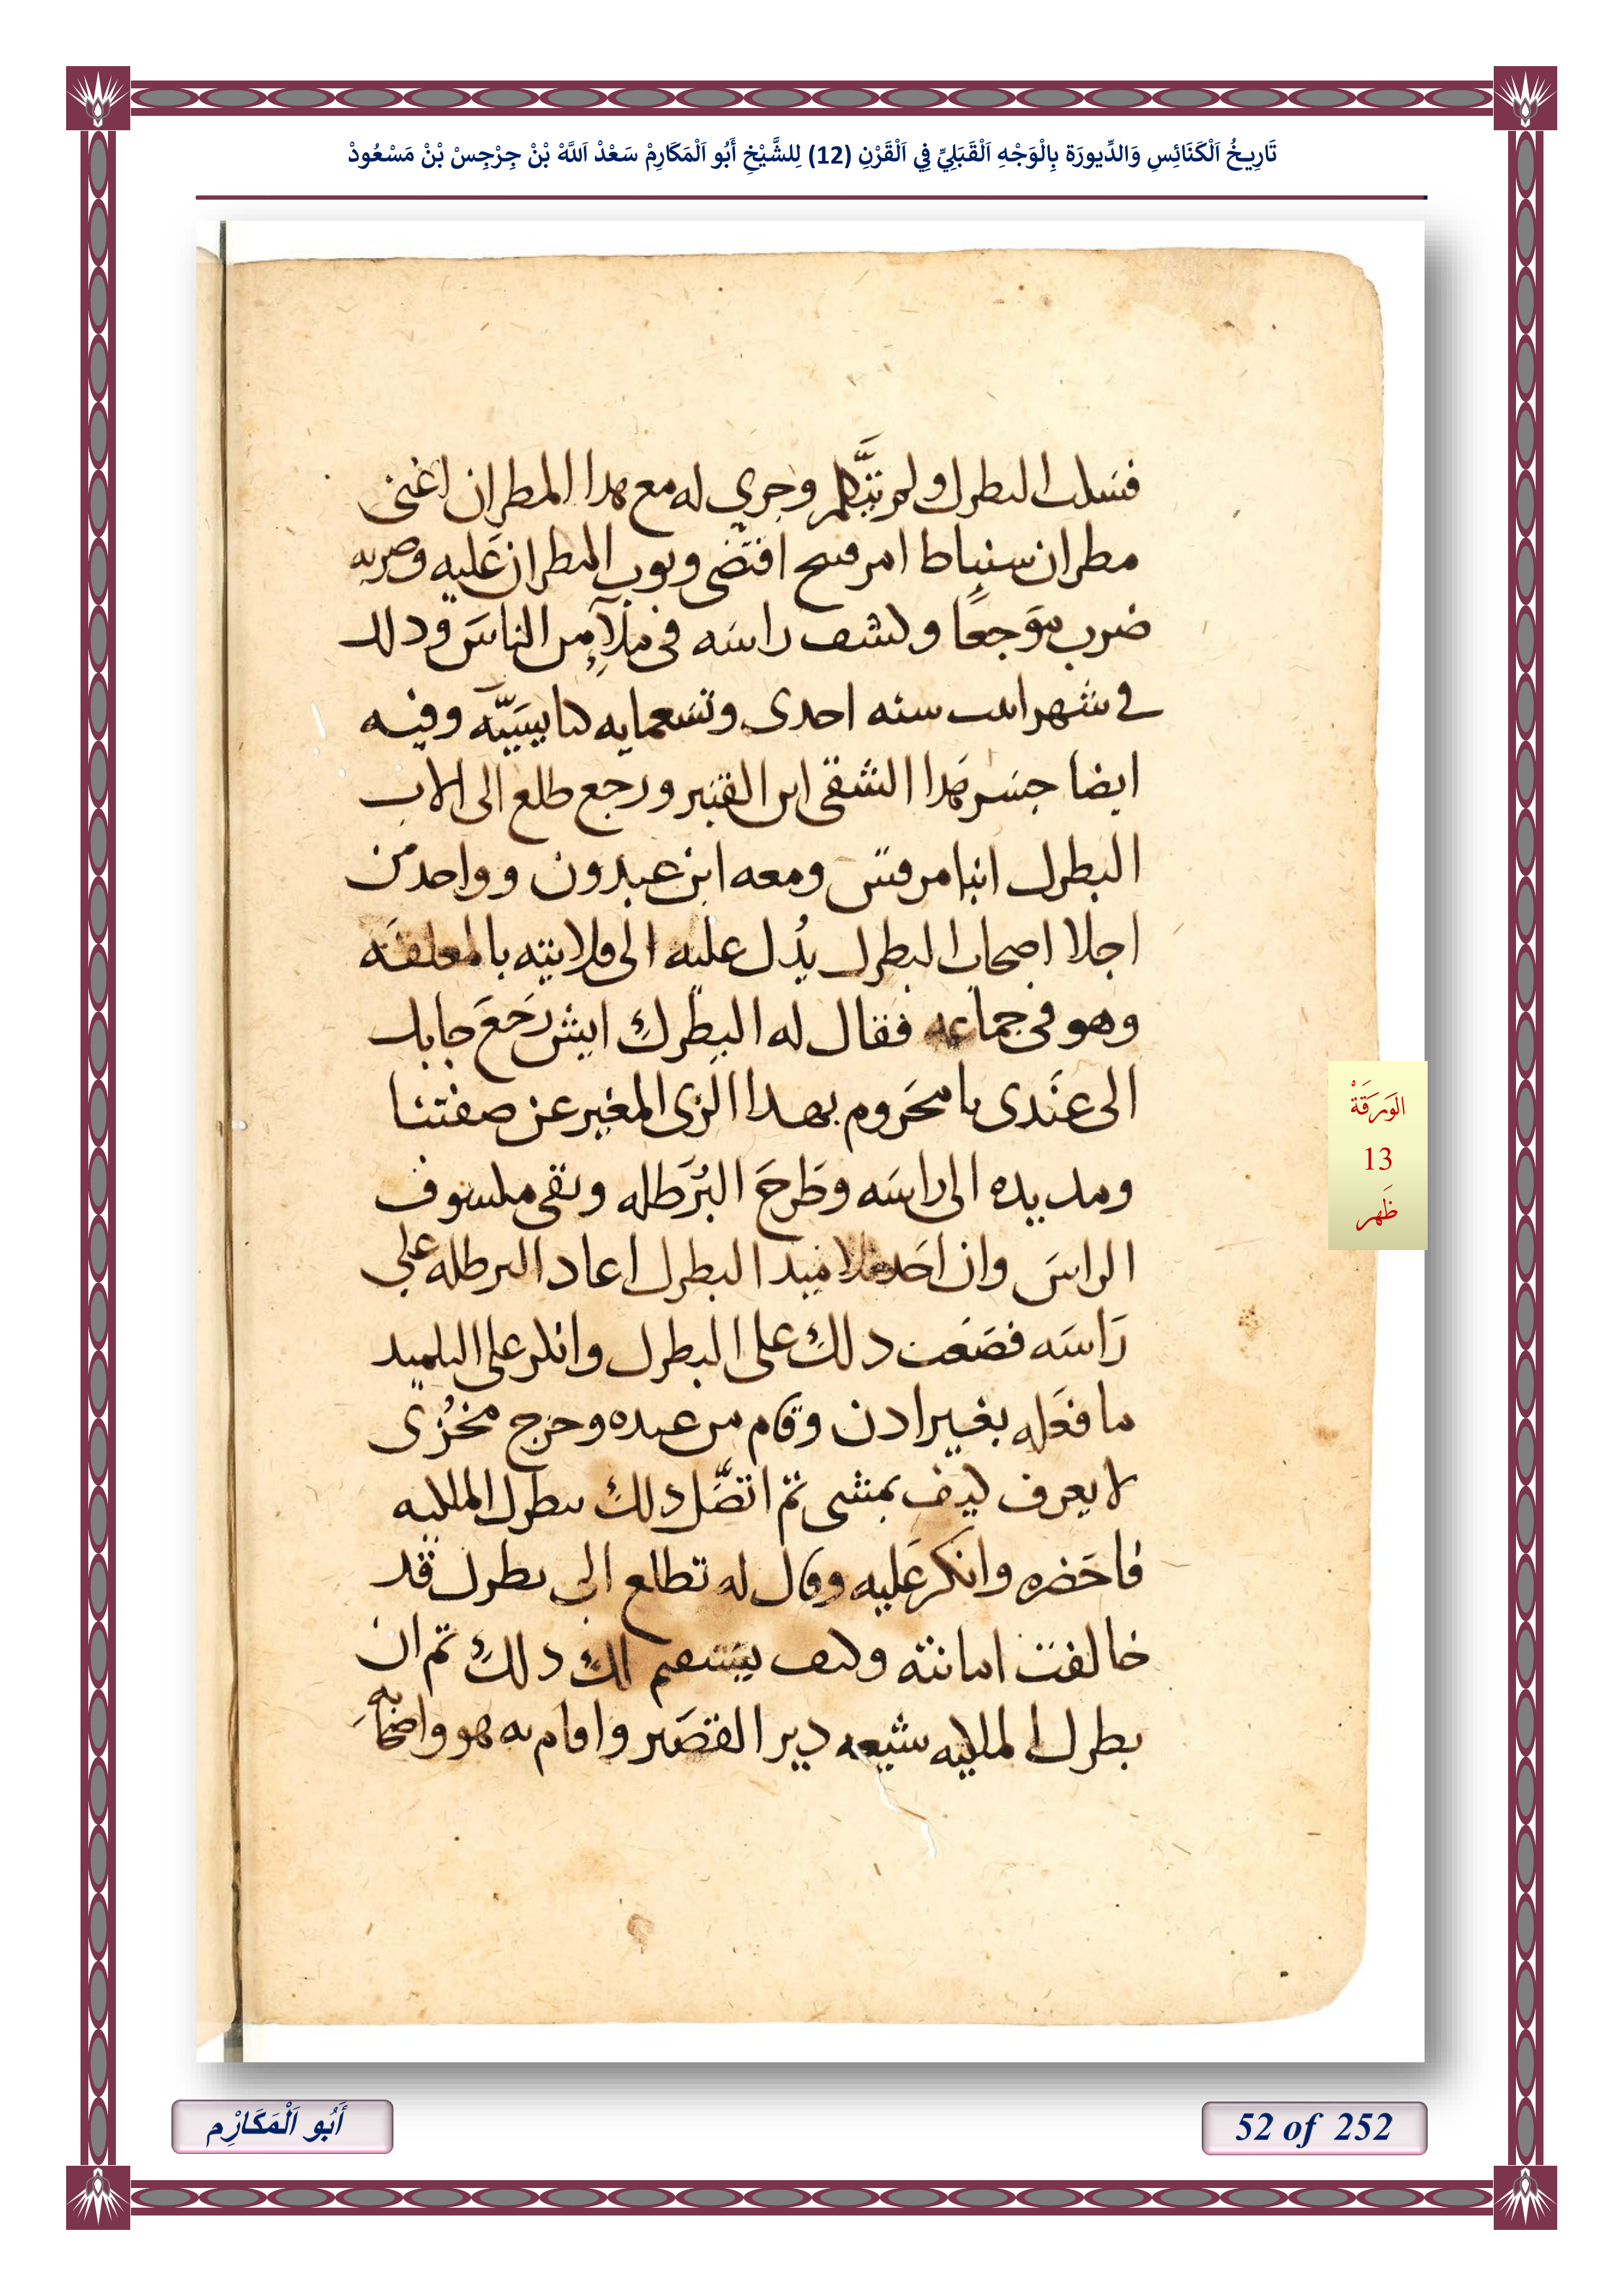 تَارِيخُ اَلْكَنَائِسِ وَالدِّيورَة بِالْوَجْهِ اَلْقَبَلِيِّ فِي اَلْقَرْنِ (12) لِلشَّيْخِ أَبُو اَلْمَكَارِمْ سَعْدْ اَللَّهْ بْنْ جِرْجِسْ بْنْ مَسْعُودْ
فسكت البطرك ولم يتكلم وجري له مع هدا المطران اعنى
مطران سنباط امر قبيح اقتضى وثوب المطران عليه وضربه
ضرب موجعًا وكشف راسه فى ملاء من الناس ودلك
في شهر امشير سنه احدى وتسعمايه وفيه
ايضا جسر هدا الشقى ابن القنبر ورجع طلع الى الاب
البطرك انبا مرقس ومعه ابن عبدون وواحد من
اجلا اصحاب البطرك يدل عليه الى قلايته بالمعلقه
وهو فى جماعه فقال له البطرك ايش رجع جابك
الى عندى يا محروم بهدا الزى المغير عن صفتنا
ومد يده الى راسه وطرح البرطله وبقى مكشوف
الراس وان احد تلاميد البطرك اعاد البرطله علي
راسه فصعب دلك على البطرك وانكر على التلميد
ما فعله بغير ادن وقام من عنده وخرج مخزى
لا يعرف كيف يمشى تم اتصل دلك ببطرك الملكيه
فاحضره وانكر عليه وقال له تطلع الى بطرك قد
خالفت امانته وكيف يستقيم لك دلك تم ان
بطرك الملكيه شيعه دير القصير واقام به هو واصحابه
الوَرَقَةْ
13
ظَهر
أَبُو اَلْمَكَارْمِ
52 of 252